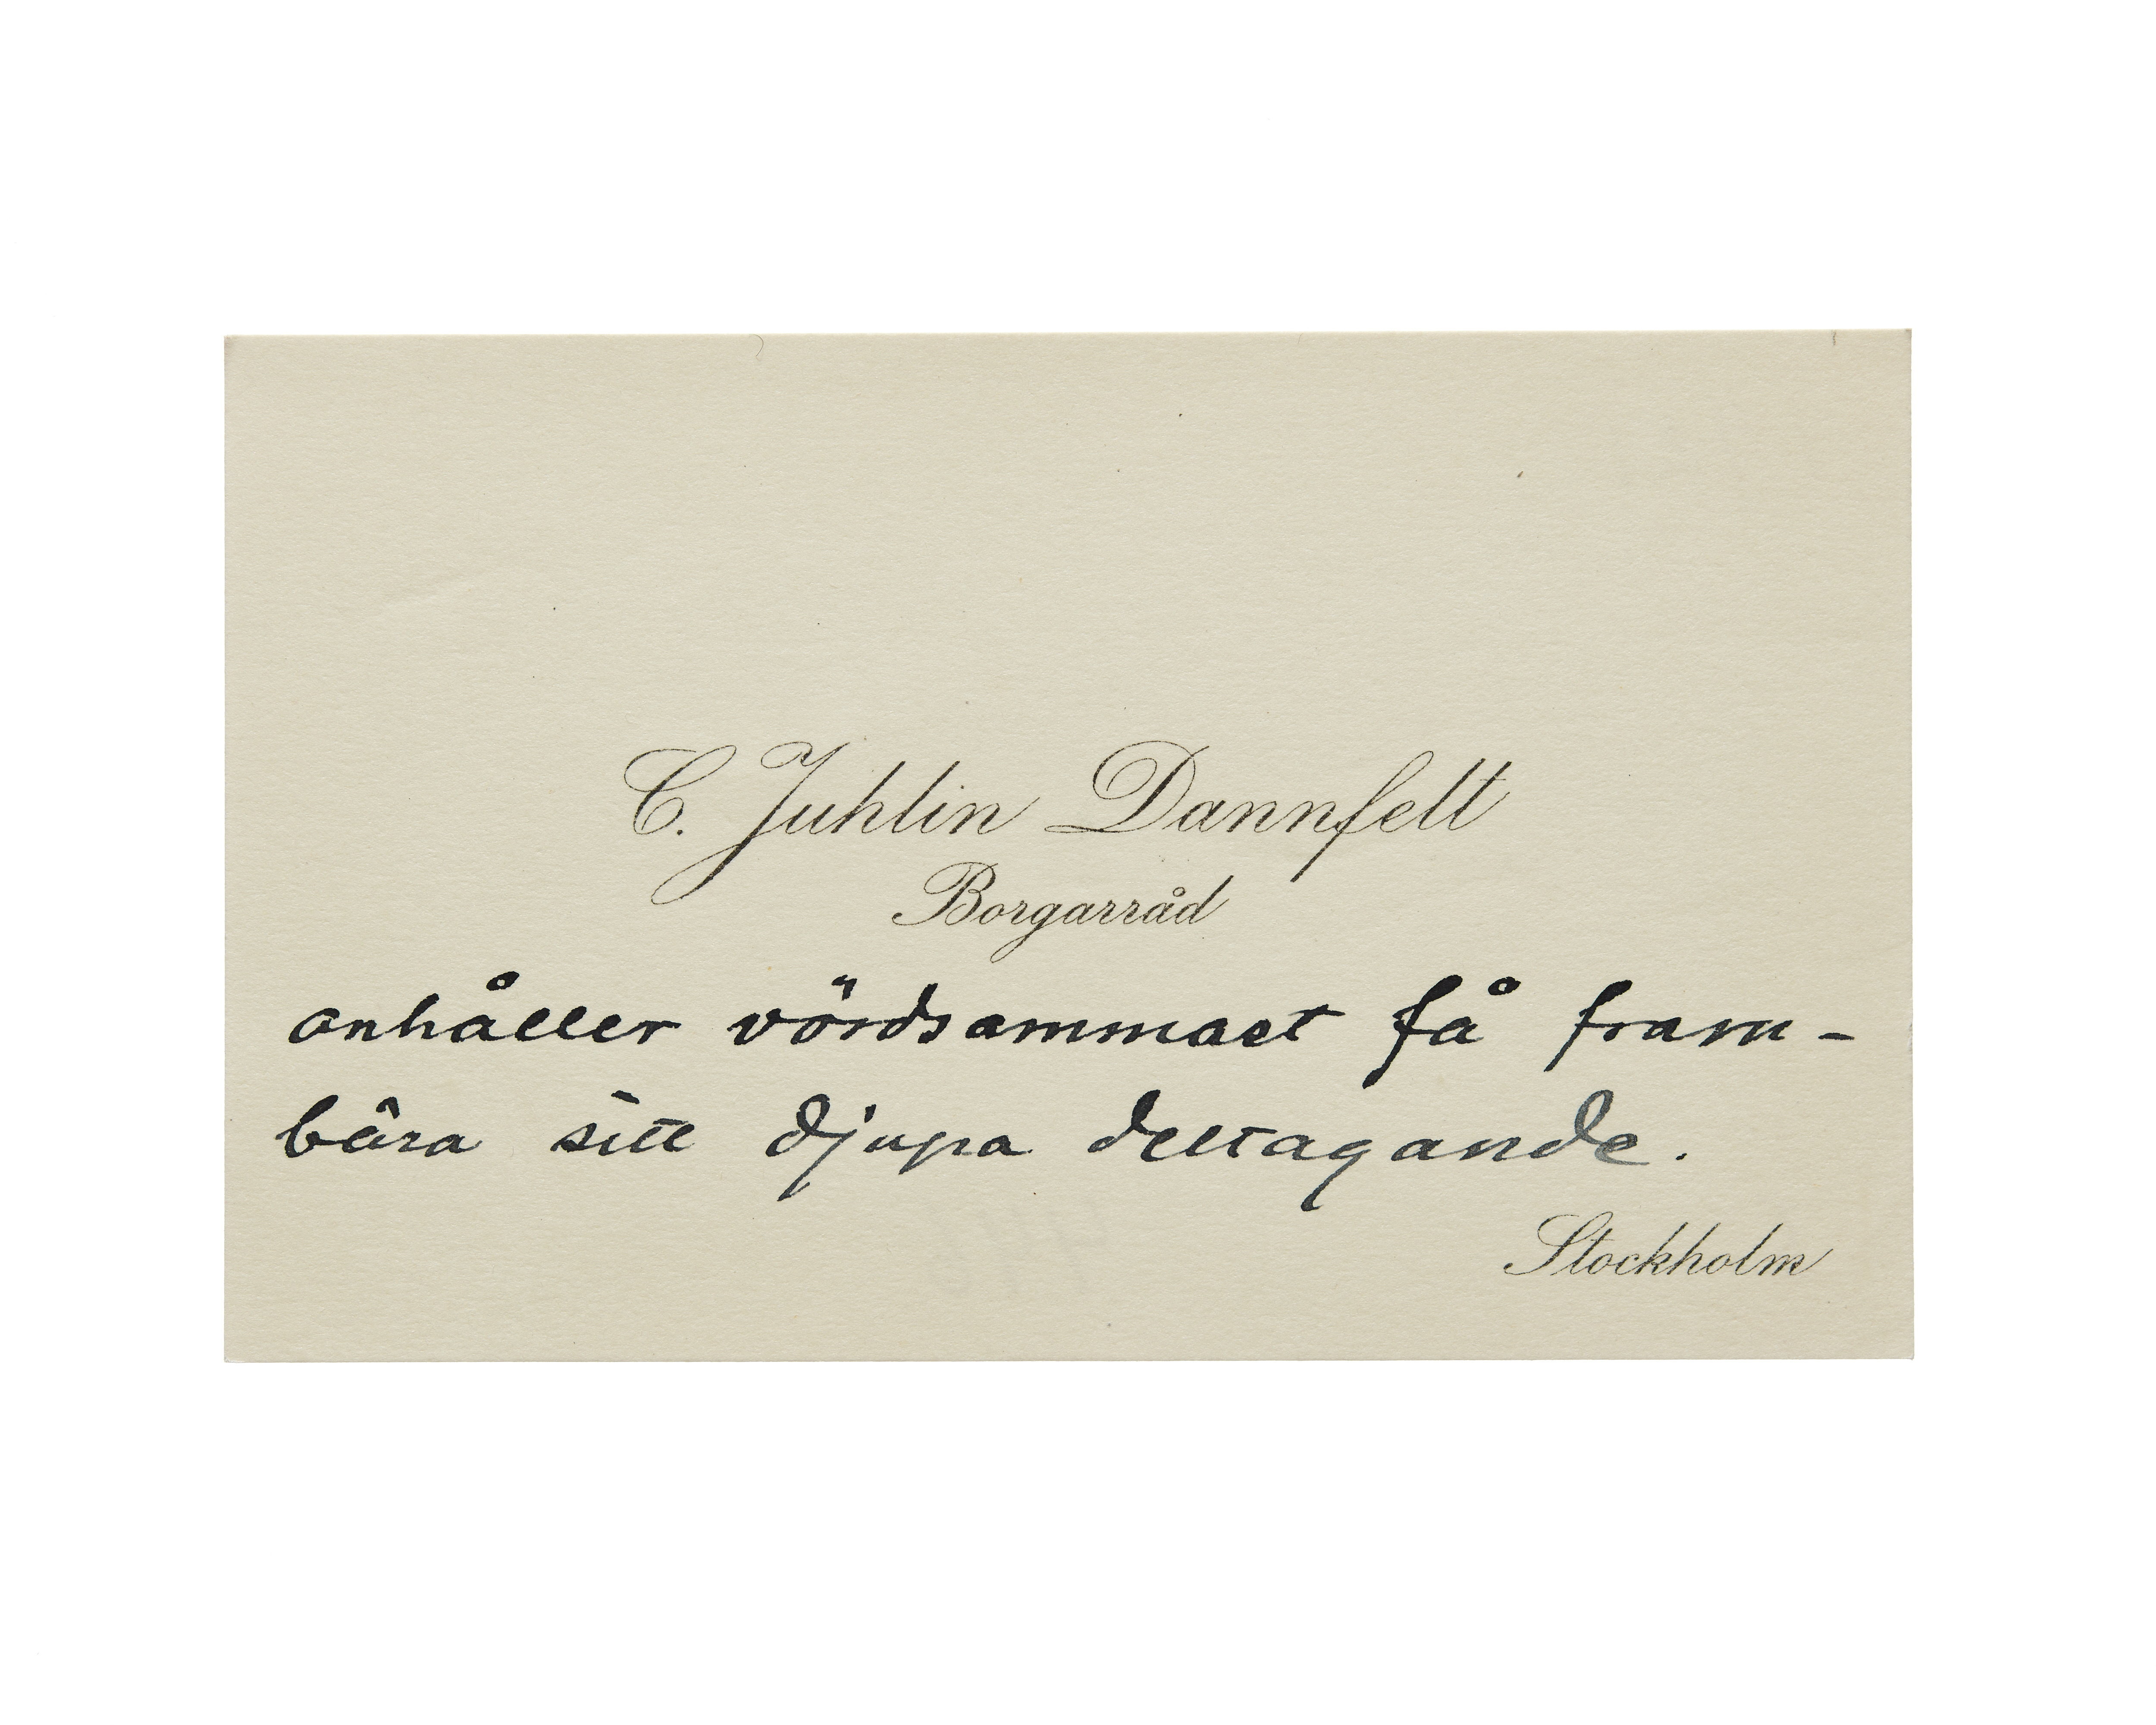 C. Juhlin Dannfelt
Borgarråd
anhåller vördsammast få fram-
bära sitt djupa deltagande.
Stockholm